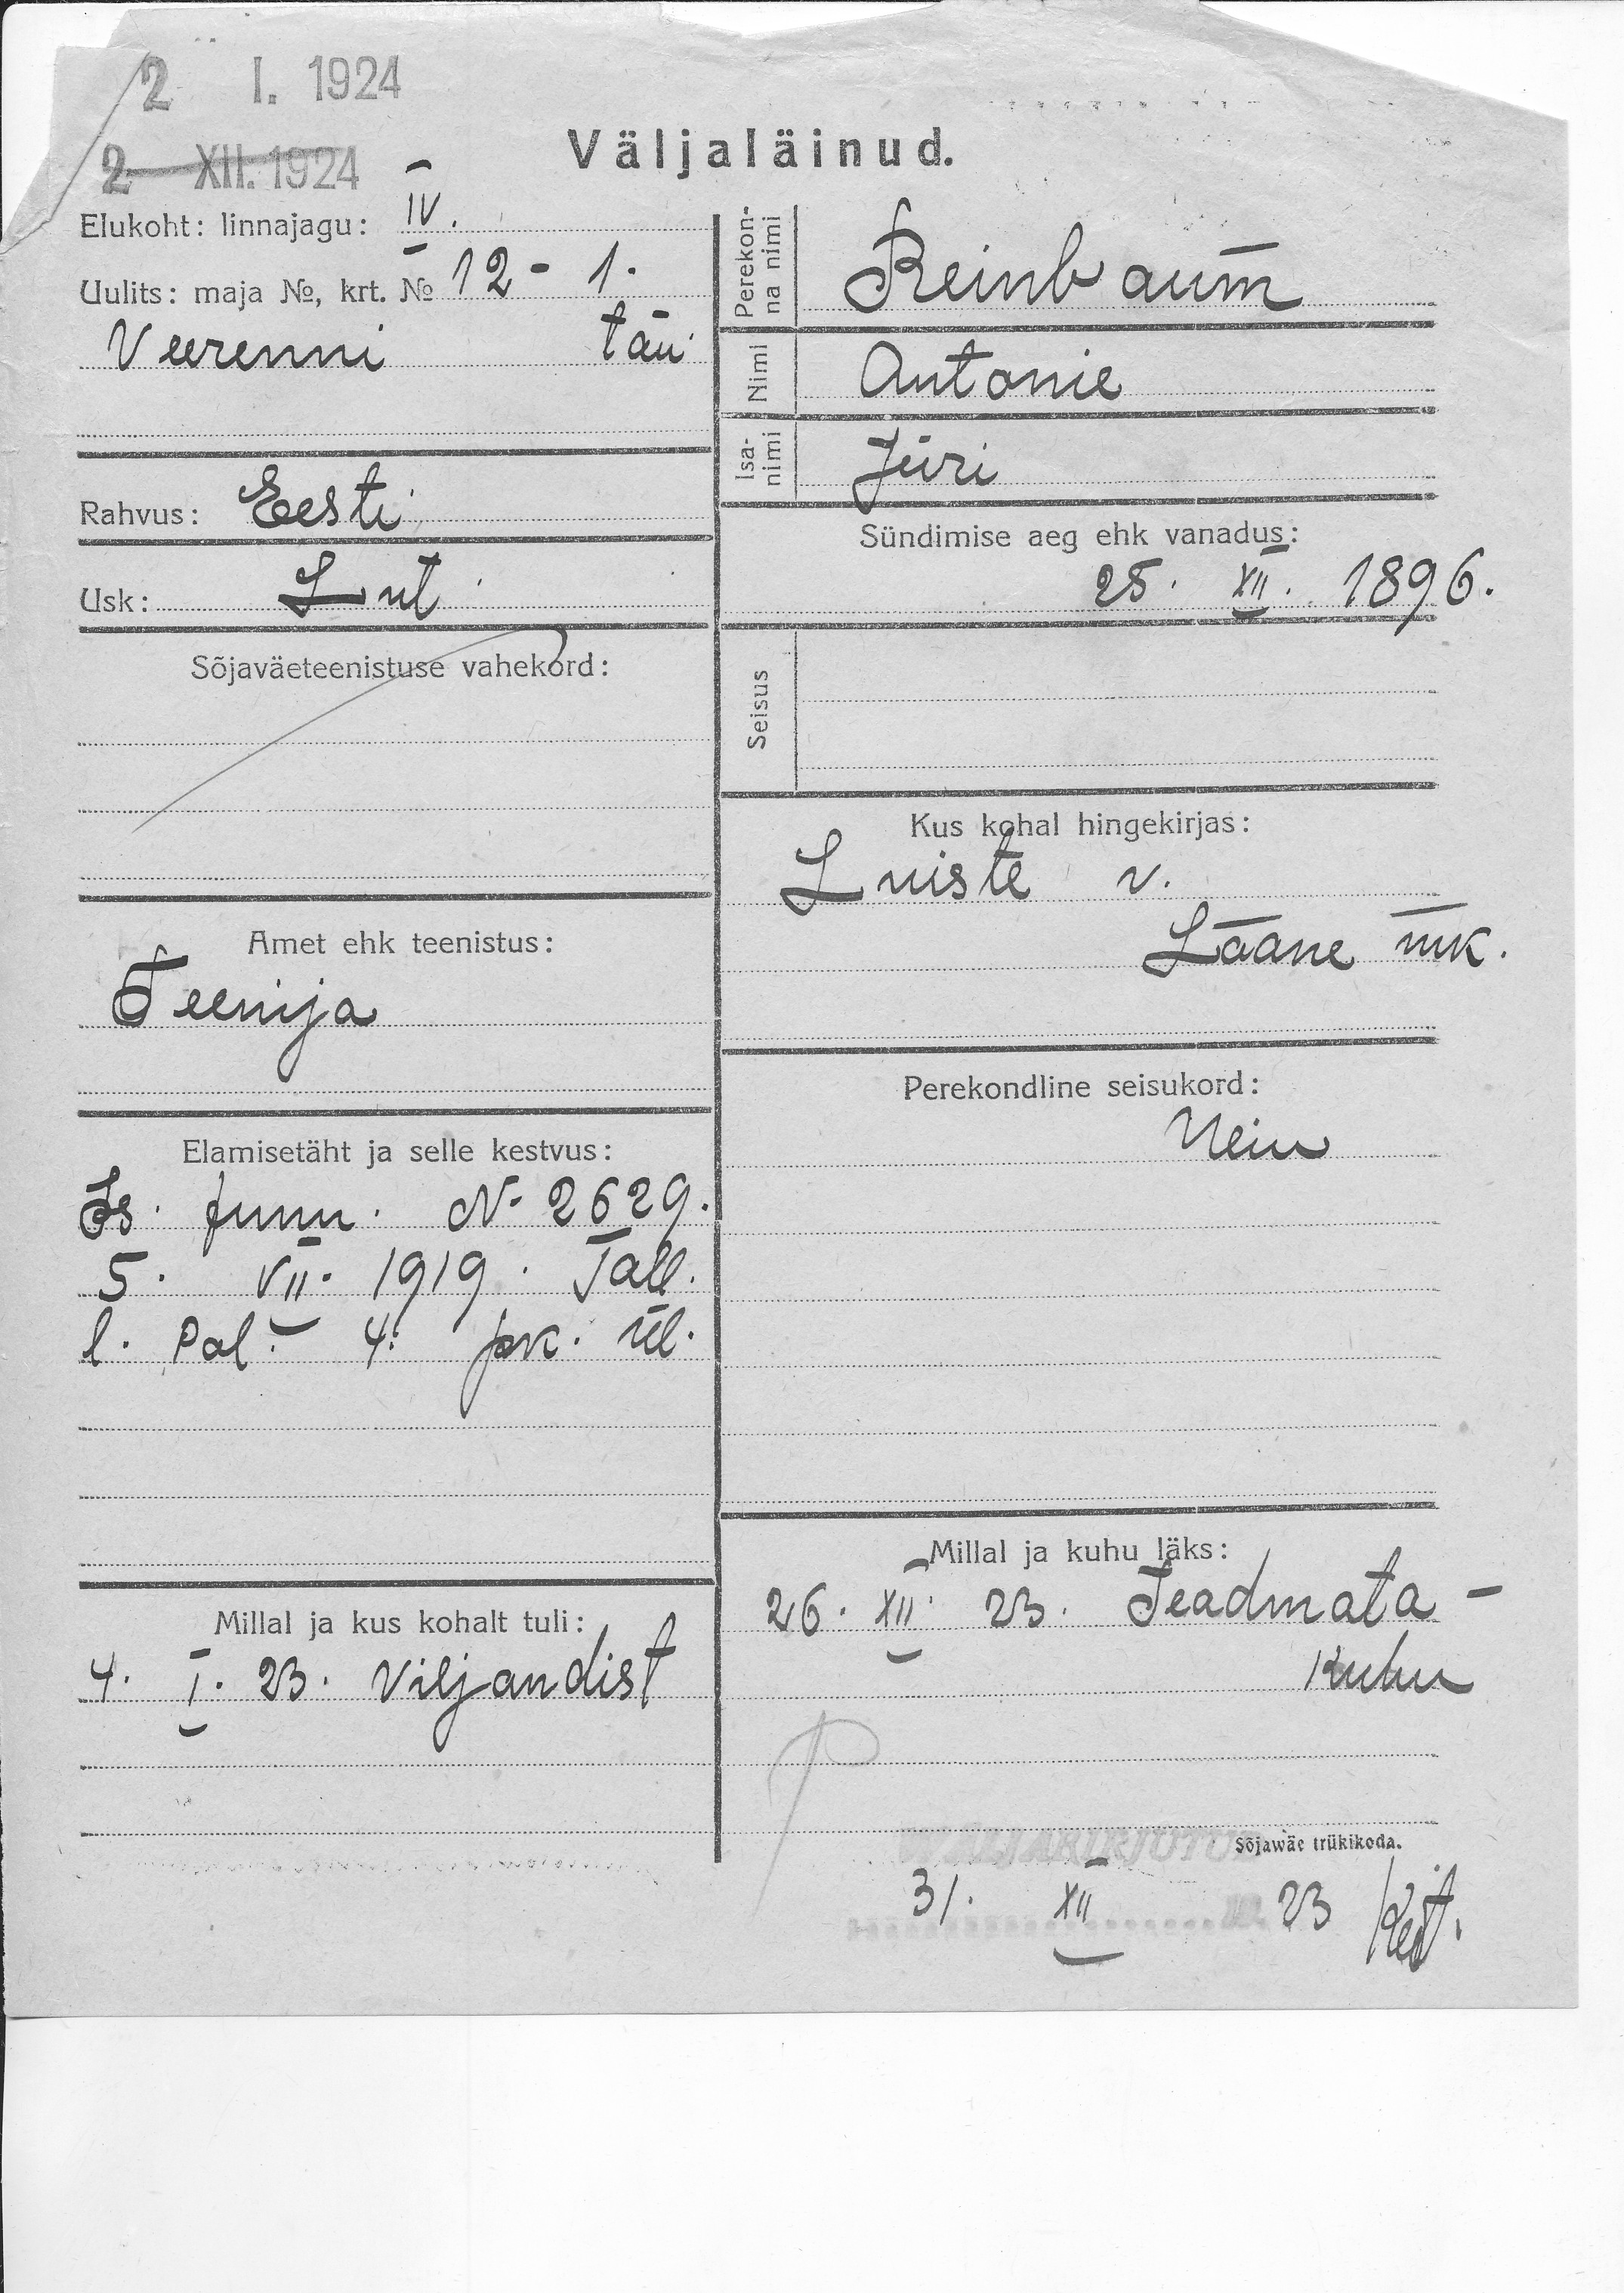 2 I. 1924
2 XII. 1924
Väljaläinud.
Elukoht: linnajagu: IV.
Uulits: maja №, krt. № 12 - 1.
Veerenni tän.
Rahvus: Eesti
Usk: Lut
Sõjaväeteenistuse vahekord:
Amet ehk teenistus:
Teenija
Elamisetäht ja selle kestvus:
Is. tunn. № 2629.
5. VII. 1919. Tall.
l. Pol. 4. jsk. ül.
Millal ja kus kohalt tuli:
4. I. 23. Viljandist
Perekon-
na nimi
Reinbaum
Nimi Antonie
Isa-
nimi
Jüri
Sündimise aeg ehk vanadus:
25. XII. 1896.
Seisus
Kus kohal hingekirjas:
Luiste v.
Lääne mk.
Perekondline seisukord:
Neiu
Millal ja kuhu läks:
26. XII. 23. Teadmata -
kuhu
Sõjawäe trükikoda.
WÄLJAKIRJUTUD
31. XII 23